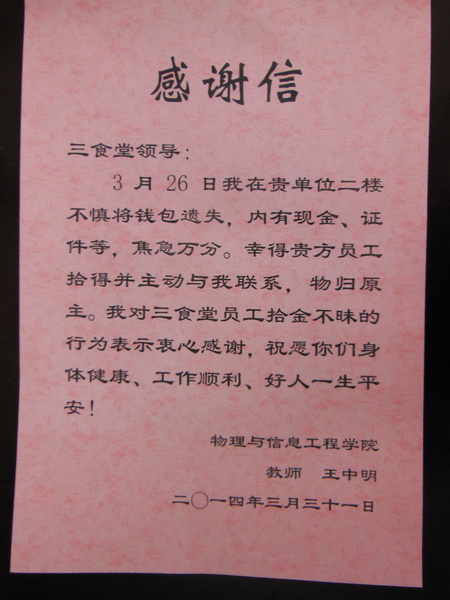 感谢信
三食堂领导：
3 月 26 日我在贵单位二楼
不慎将钱包遗失，内有现金、证
件等，焦急万分。幸得贵方员工
拾得并主动与我联系，物归原
主。我对三食堂员工拾金不昧的
行为表示衷心感谢，祝愿你们身
体健康、工作顺利、好人一生平
安！
物理与信息工程学院
教师 王中明
二〇一四年三月三十一日